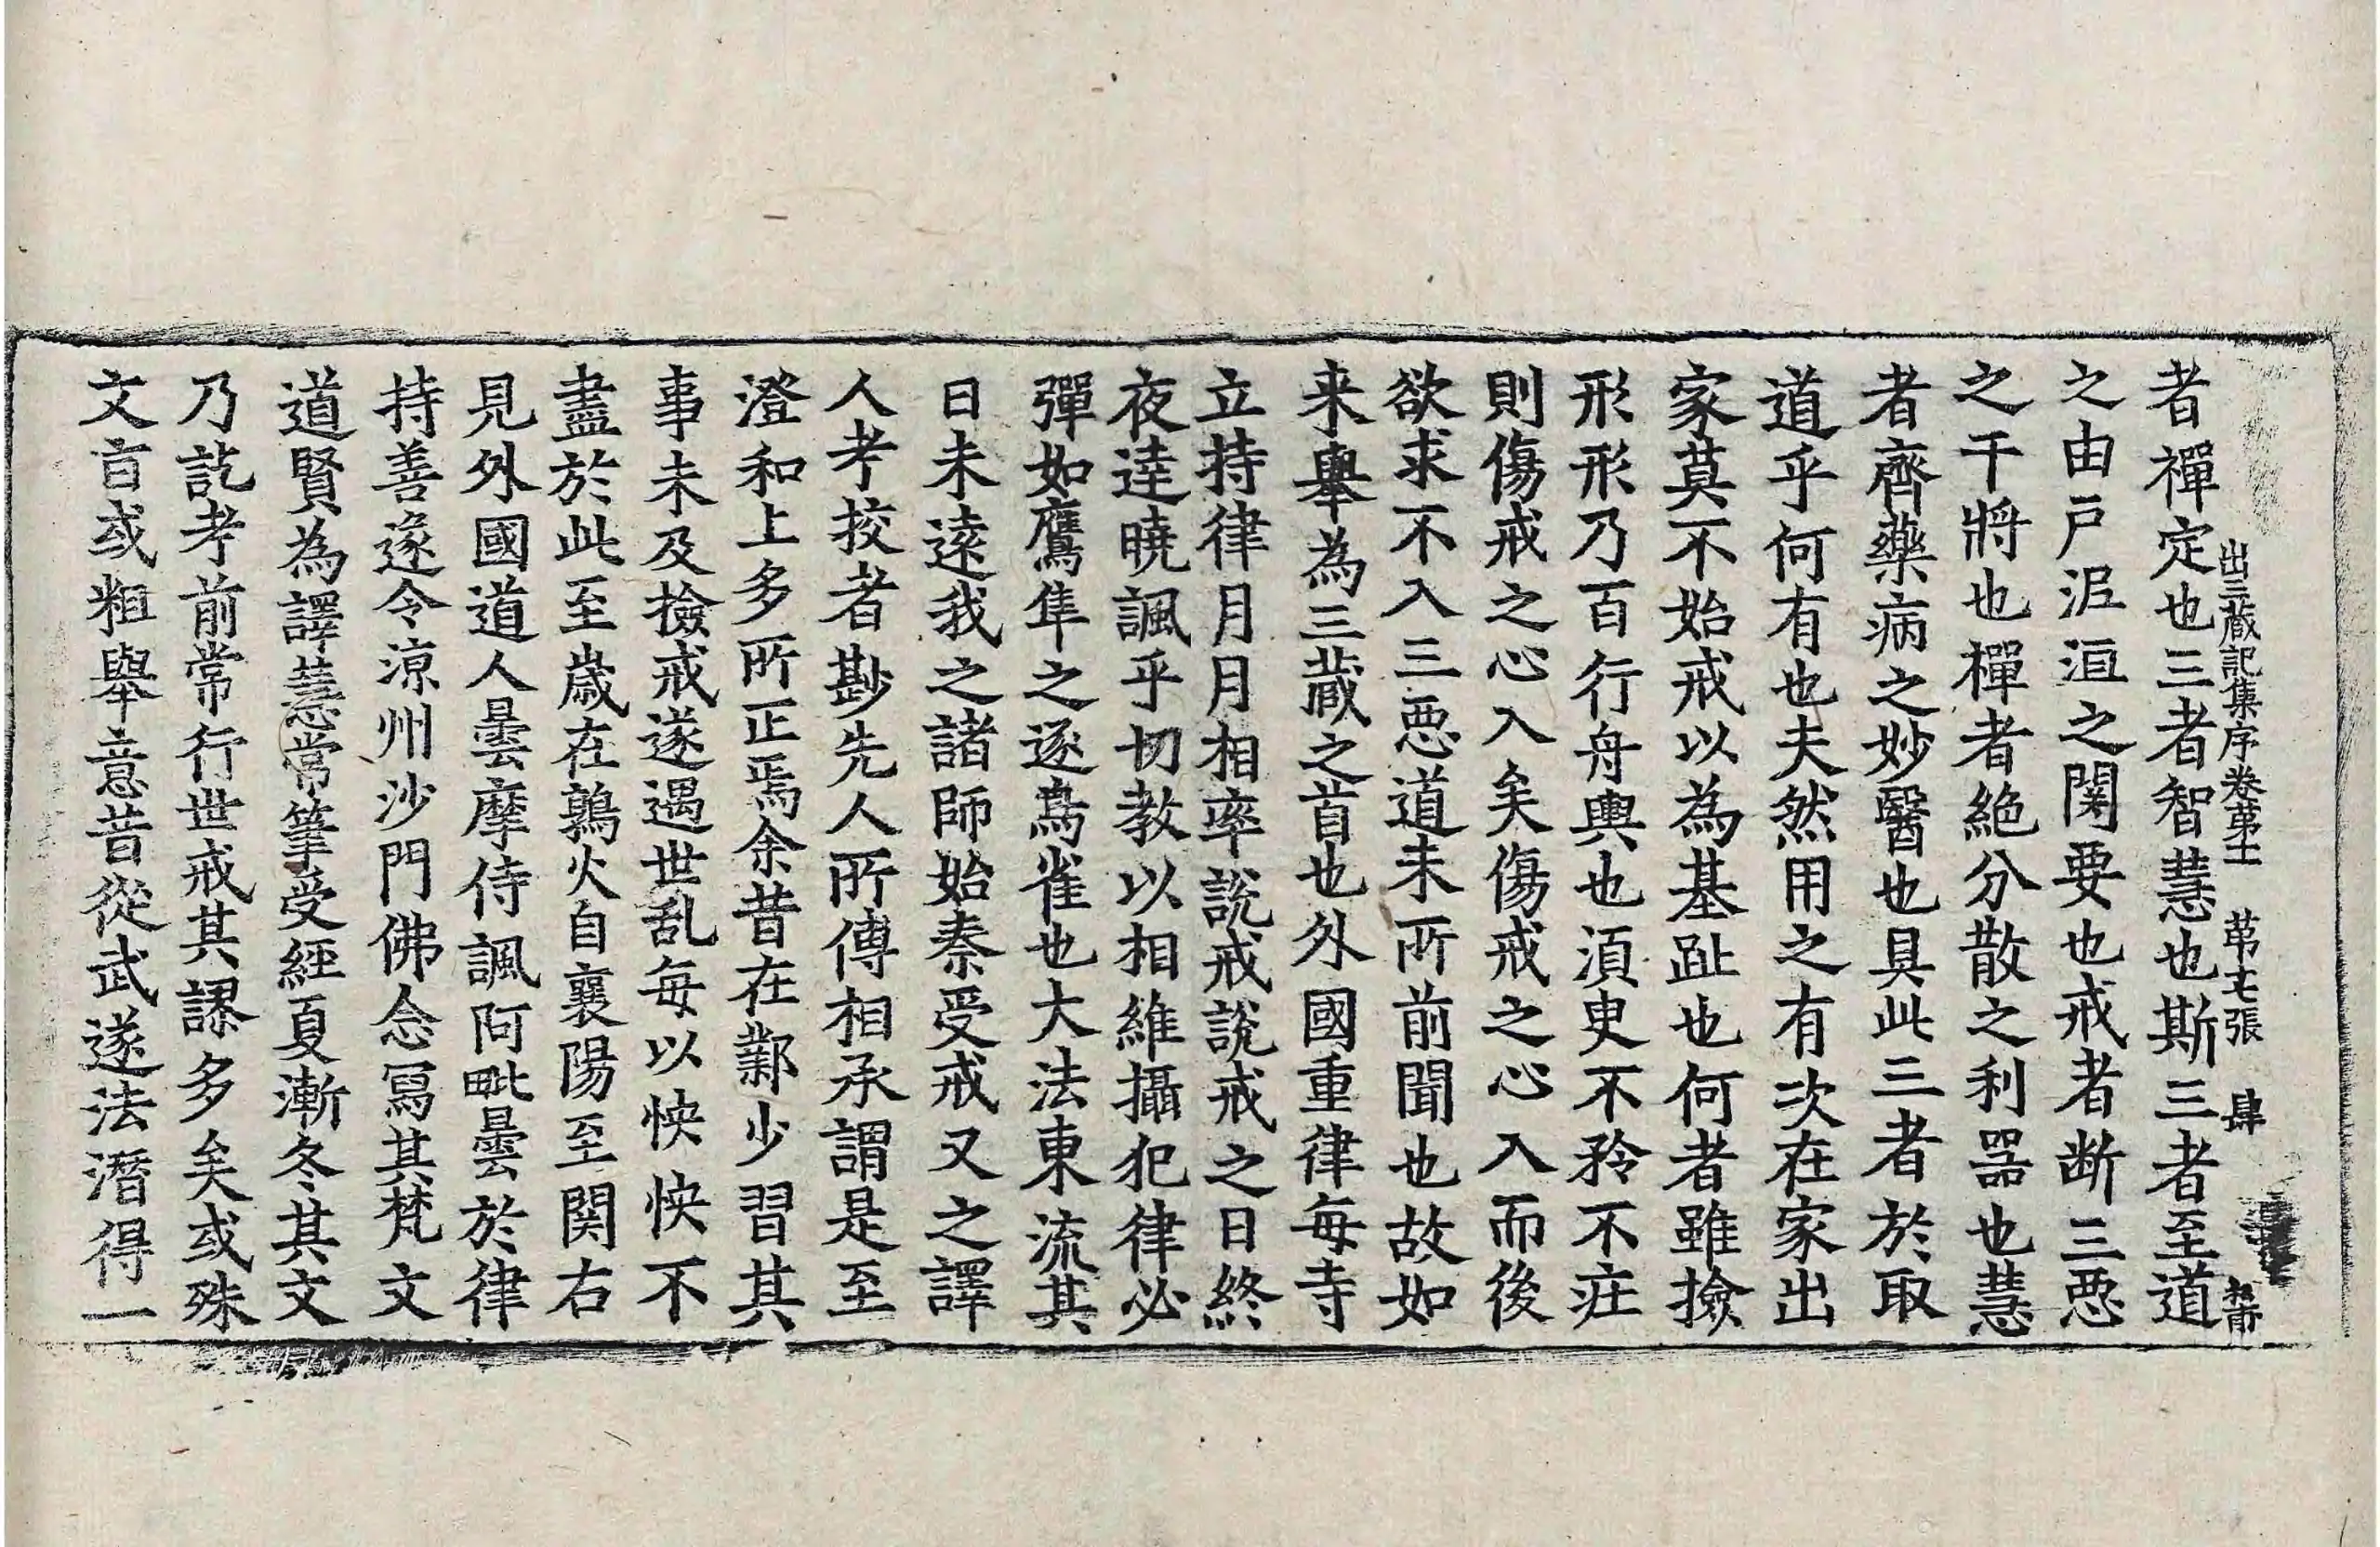 者禪定也三者智慧也斯三者至道
出三藏記集序卷苐十一 苐七張 肆
之由戸泥洹之関要也戒者断三悪
之干將也禪者絶分散之利器也慧
者齊藥病之妙醫也具此三者於取
道乎何有也夫然用之有次在家出
家莫不始戒以為基趾也何者雖撿
形形乃百行舟輿也湏臾不矜不莊
則傷戒之心入矣傷戒之心入而後
欲求不入三悪道未所前聞也故如
来舉為三藏之首也外國重律每寺
立持律月月相率說戒說戒之日終
夜達曉諷乎切教以相維攝犯律必
彈如鷹隼之逐鳥雀也大法東流其
日未遠我之諸師始秦受戒又之譯
人考挍者尠先人所傳相承謂是至
澄和上多所正焉余昔在鄴少習其
事未及撿戒遂遇世乱每以怏怏不
盡於此至歲在鶉火自襄陽至関右
見外國道人曇摩侍諷阿毗曇於律
持善遂令涼州沙門佛念寫其梵文
道賢為譯慧常筆受經夏漸冬其文
乃訖考前常行世戒其謬多矣或殊
文旨或粗舉意昔從武遂法潛得一